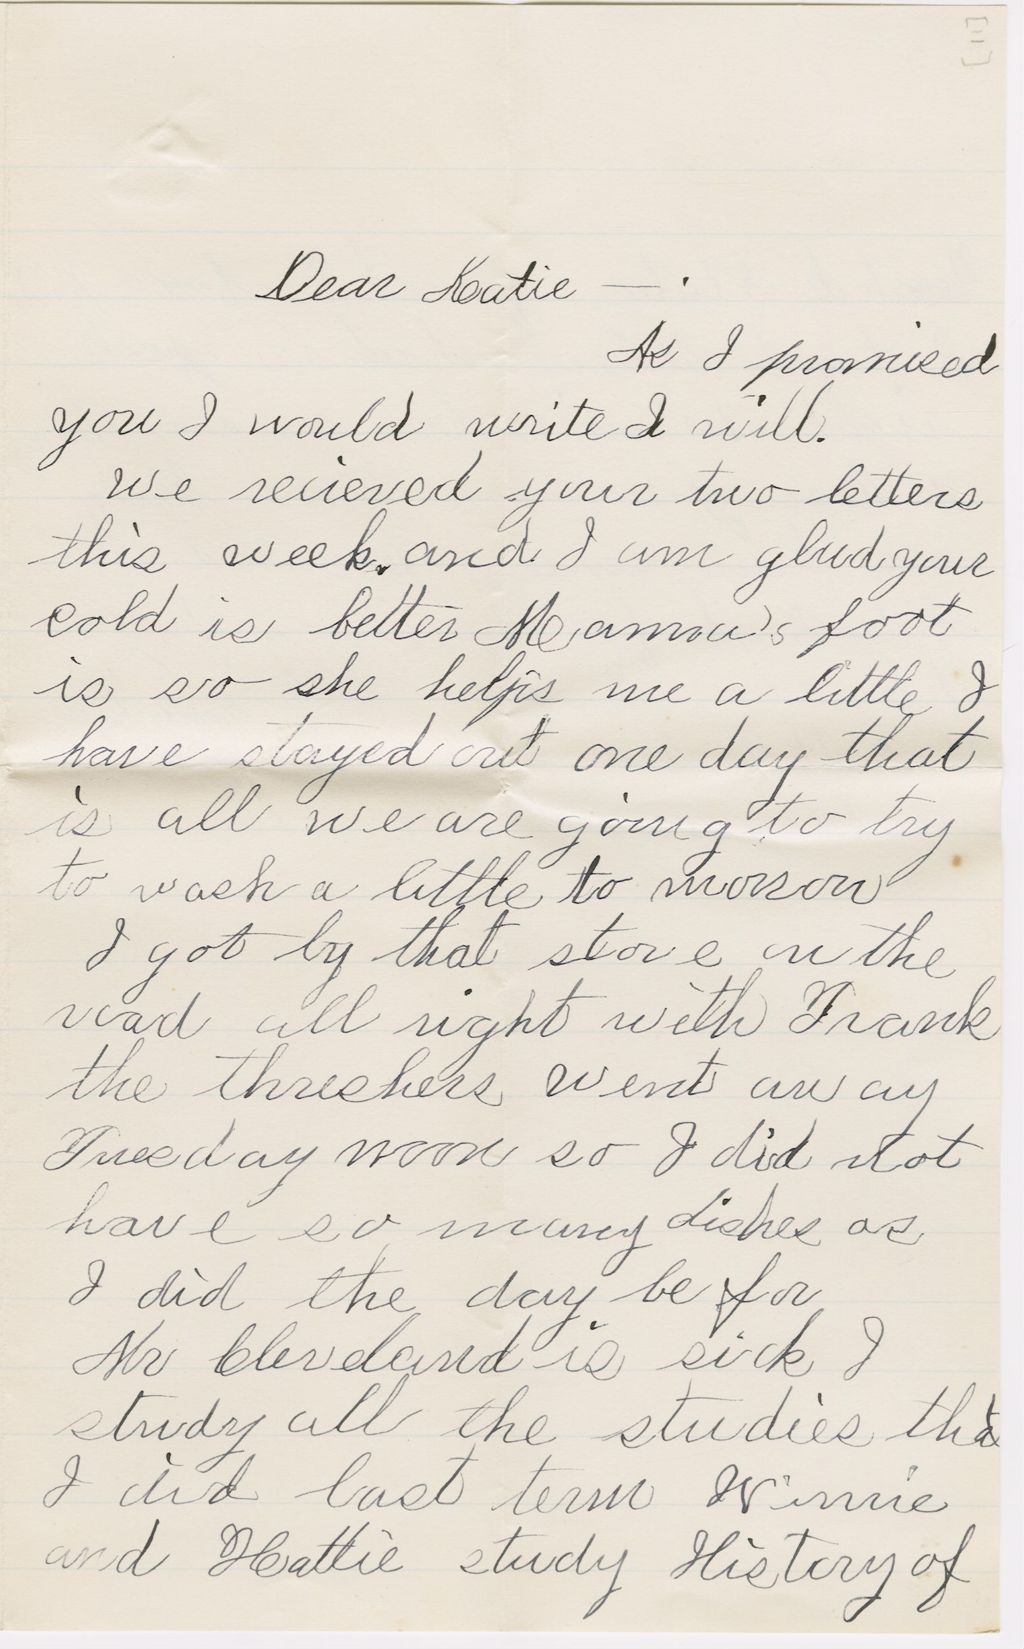 [1]
Dear Katie — .
As I promised
you I would write I will.
We recieved your two letters
this week. and I am glad your
cold is better Mamma's foot
is so she helps me a little I
have stayed out one day that
is all we are going to try
to wash a little to morrow
I got by that stove in the
road all right with Frank
the threshers went away
Tuesday noon so I did not
have so many dishes as
I did the day be for
Mr Cleveland is sick I
study all the studies that
I did last term Winnie
and Hattie study History of